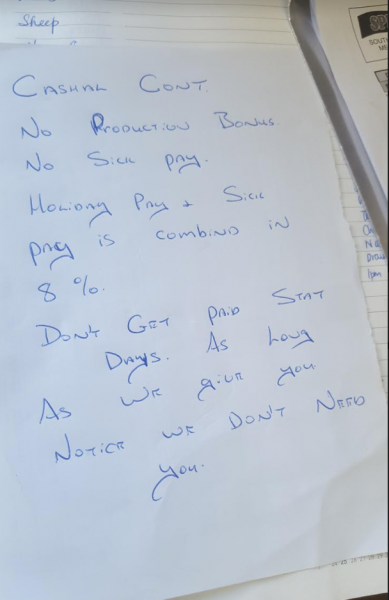 Sheep
SOUTH
CASUAL CONT.
NO PRODUCTION BONUS.
NO SICK PAY.
HOLIDAY PAY + SICK
PAY IS COMBIND IN
8%.
DON'T GET PAID STAT
DAYS. AS LONG
AS WE GIVE YOU
NOTICE WE DON'T NEED
YOU.